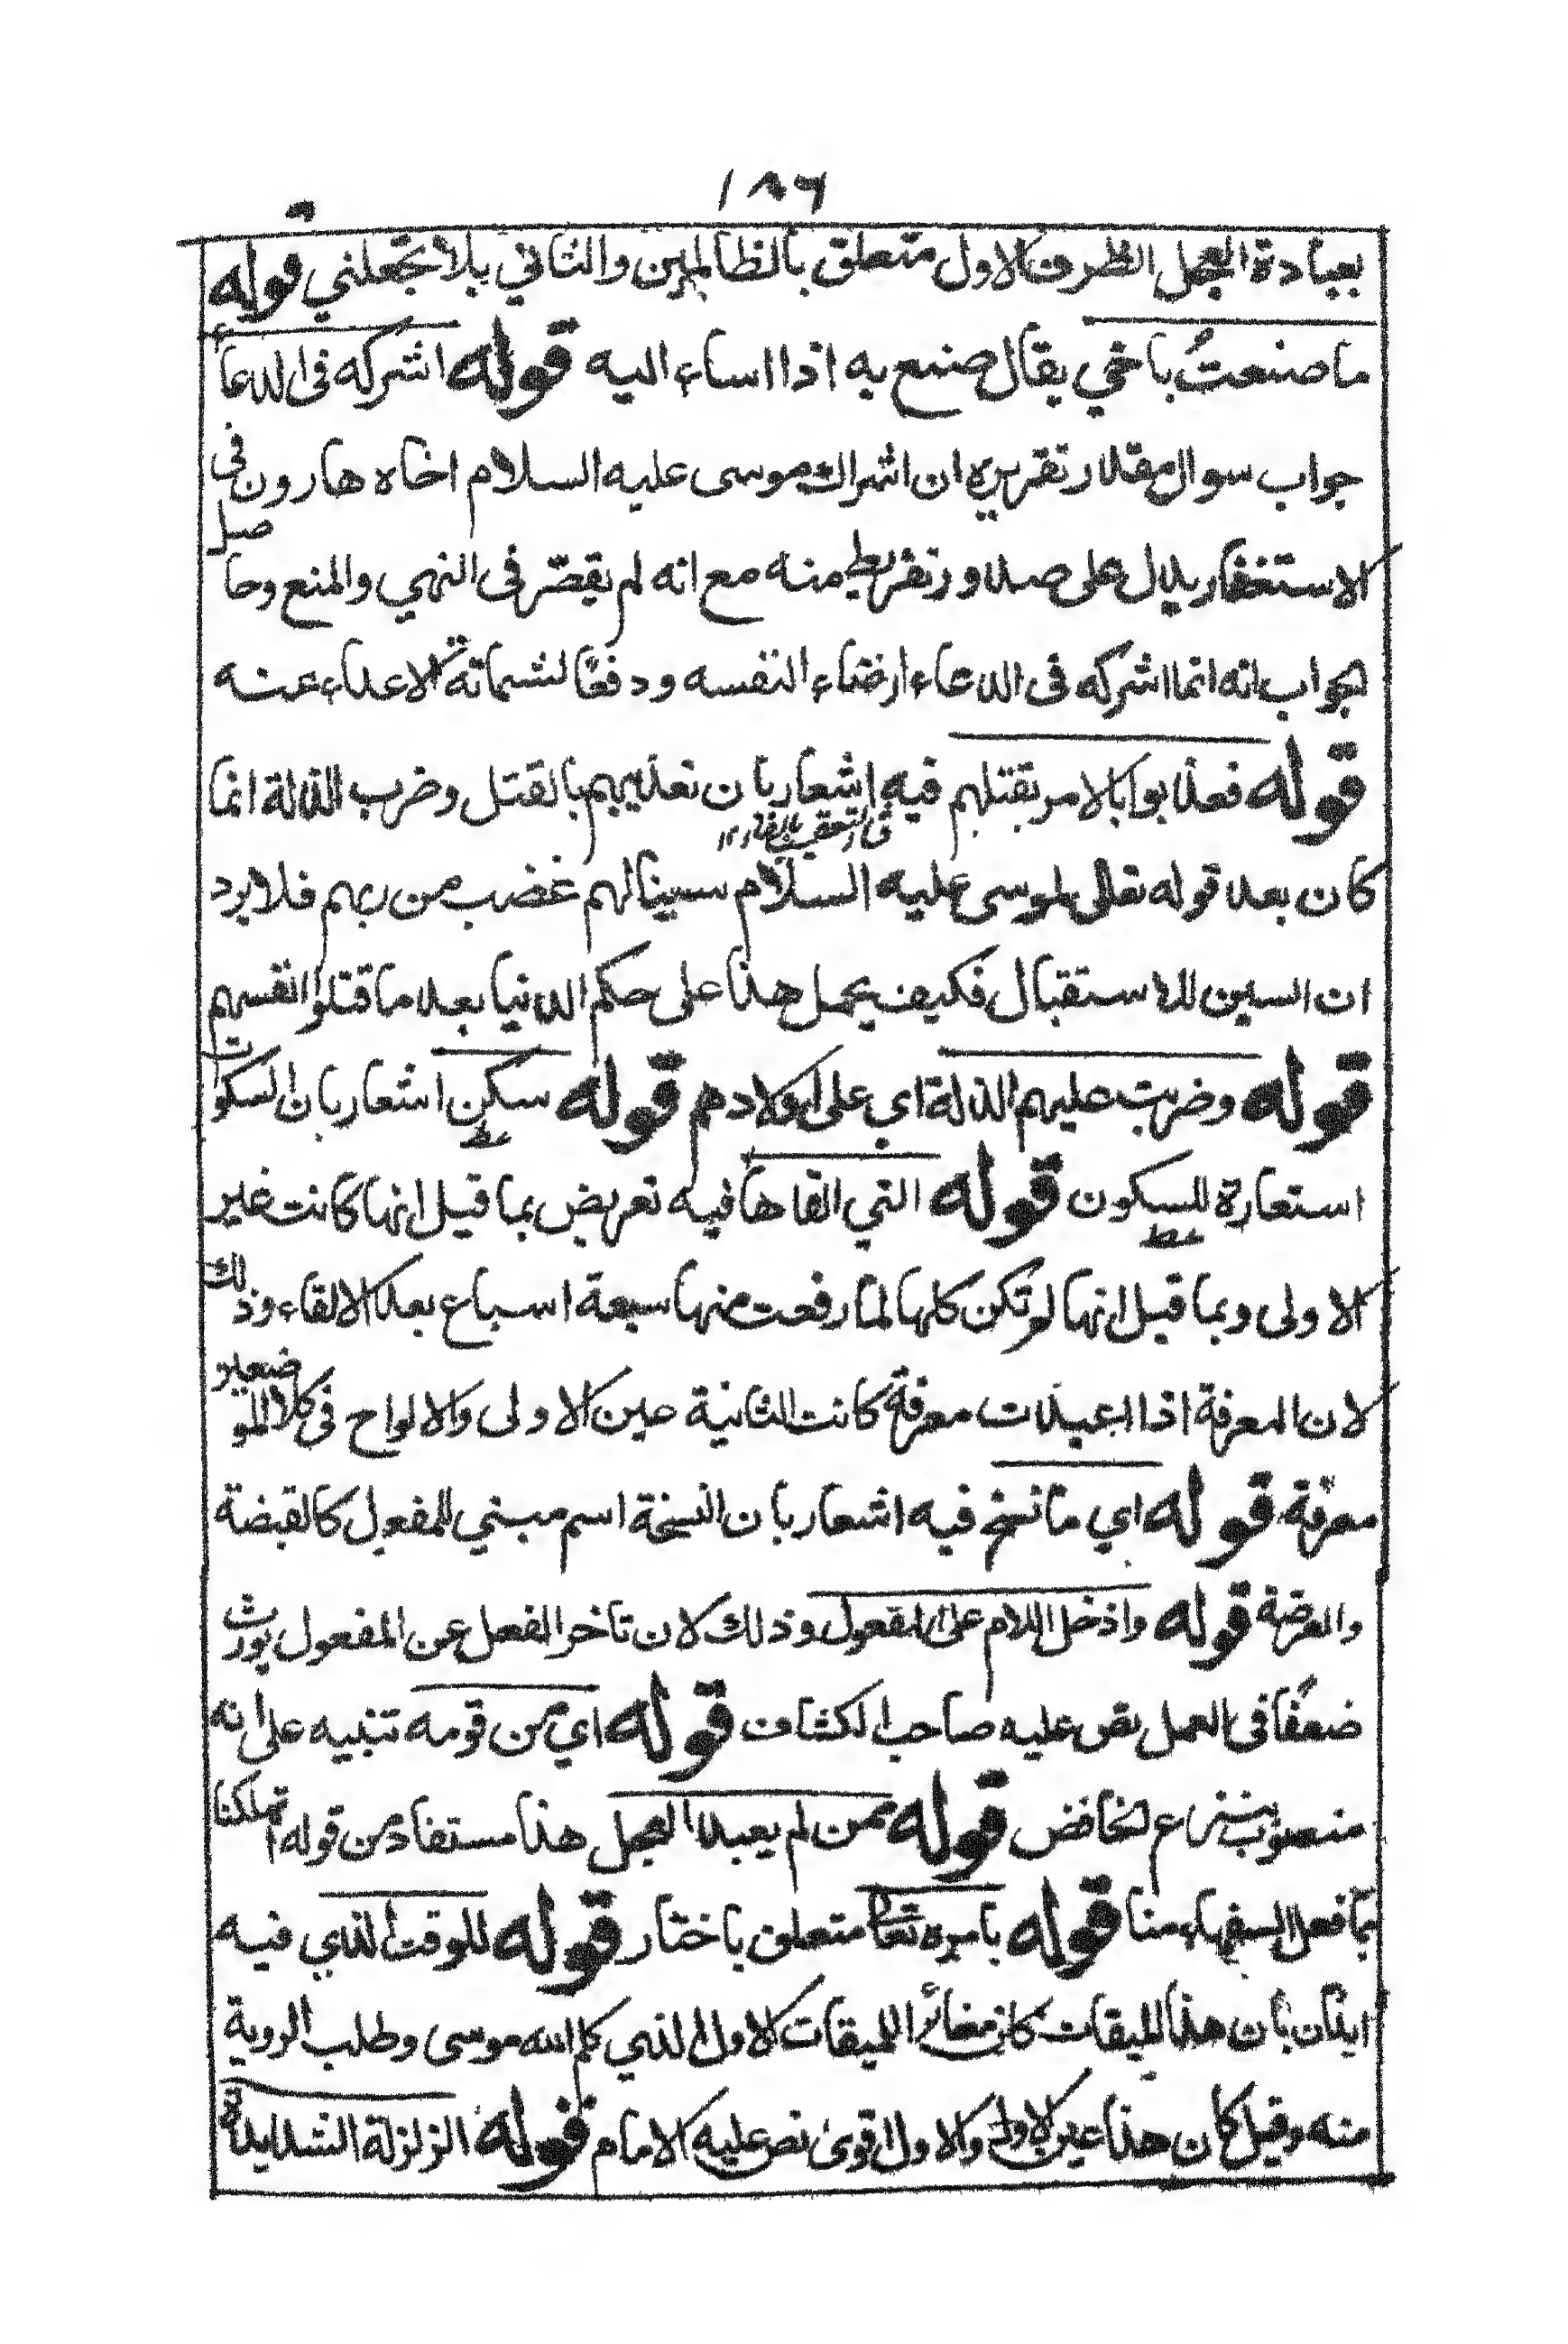 ١٨٦
بعبادة العجل الظرف الاول متعلق بالظالمين والثاني بلا تجعلني قوله
ما صنعت باخي يقال صنع به اذا اساء اليه قوله اشركه فى الدعاء
جواب سوال مقدر تقريره ان اشراك موسى عليه السلام اخاه هارون فى
الاستغفار يدل على صدور تفريط منه مع انه لم يقصّر فى النهي والمنع وحاصل
الجواب انه انما اشركه فى الدعاء ارضاء لنفسه ودفعًا لشماتة الاعداء عنه
قوله فعذبوا بالامر بقتلهم فيه اشعار بان تعذيبهم بالقتل وضرب الذلة انما
كان بعد قوله تعالى لموسى عليه السلام سينالهم غضب من ربهم فلا يرد
ان السين للاستقبال فكيف يحمل هذا على حكم الدنيا بعد ما قتلوا انفسهم
قوله وضربت عليهم الذلة اي على اولادهم قوله سكن اشعار بان السكوت
استعارة للسكون قوله التي القاها فيه تعريض بما قيل انها كانت غير
الاولى وبما قيل انها لم تكن كلها لما رفعت منها سبعة اسباع بعد الالقاء وذلك
لان المعرفة اذا اعيدت معرفة كانت الثانية عين الاولى والالواح فى كلا الموضعين
معرفة قوله اي ما نسخ فيه اشعار بان النسخة اسم مبني للمفعول كالقبضة
والعرضة قوله وادخل اللام على المفعول وذلك لان تاخر الفعل عن المفعول يورث
ضعفًا فى العمل نص عليه صاحب الكشاف قوله اي من قومه تنبيه على انه
منصوب بنزع الخافض قوله ممن لم يعبد العجل هذا مستفاد من قوله اتهلكنا
بما فعل السفهاء منا قوله بامره تعالى متعلق باختار قوله للوقت الذي فيه
ايذان بان هذا الميقات كان مغائر الميقات الاول الذي كلم الله موسى وطلب الروية
منه وقيل كان هذا عين الاول والاول اقوى نص عليه الامام قوله الزلزلة الشديدة